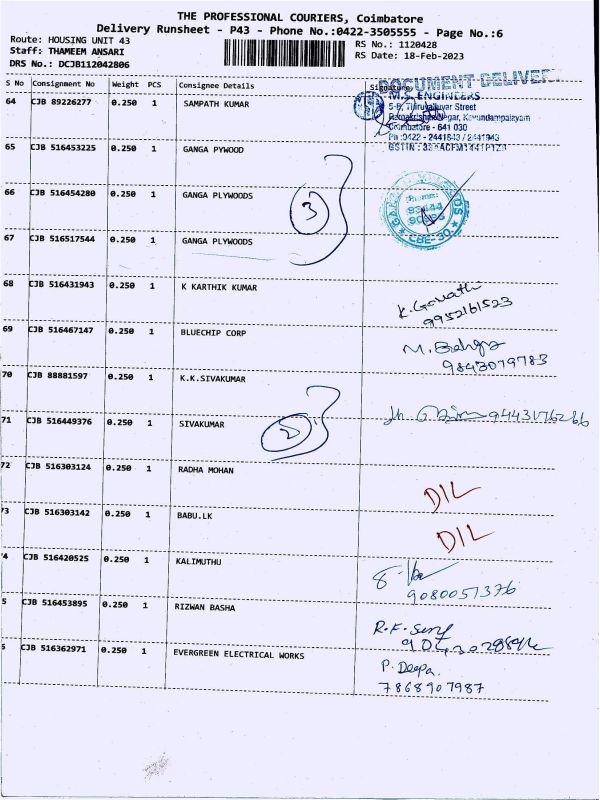 THE PROFESSIONAL COURIERS, Coimbatore
Delivery Runsheet - P43 - Phone No.:0422-3505555 - Page No.:6
Route: HOUSING UNIT 43
Staff: THAMEEM ANSARI
DRS No.: DCJB112042806
RS No.: 1120428
RS Date: 18-Feb-2023
S No Consignment No Weight PCS Consignee Details Signature
DOCUMENT DELIVER
64 CJB 89226277 0.250 1 SAMPATH KUMAR
M.S. ENGINEERS
Street
Nagar, Kavundampalayam
Coimbatore - 641 030
65 CJB 516453225 0.250 1 GANGA PYWOOD
66 CJB 516454280 0.250 1 GANGA PLYWOODS
3
CBE-30
67 CJB 516517544 0.250 1 GANGA PLYWOODS
68 CJB 516431943 0.250 1 K KARTHIK KUMAR
9952161523
69 CJB 516467147 0.250 1 BLUECHIP CORP
9843079783
70 CJB 88881597 0.250 1 K.K.SIVAKUMAR
71 CJB 516449376 0.250 1 SIVAKUMAR
2
9443176286
72 CJB 516303124 0.250 1 RADHA MOHAN
DIL
73 CJB 516303142 0.250 1 BABU.LK
DIL
4 CJB 516420525 0.250 1 KALIMUTHU
9080051376
5 CJB 516453895 0.250 1 RIZWAN BASHA
R.F.
6 CJB 516362971 0.250 1 EVERGREEN ELECTRICAL WORKS
P. Deepa.
7868907987